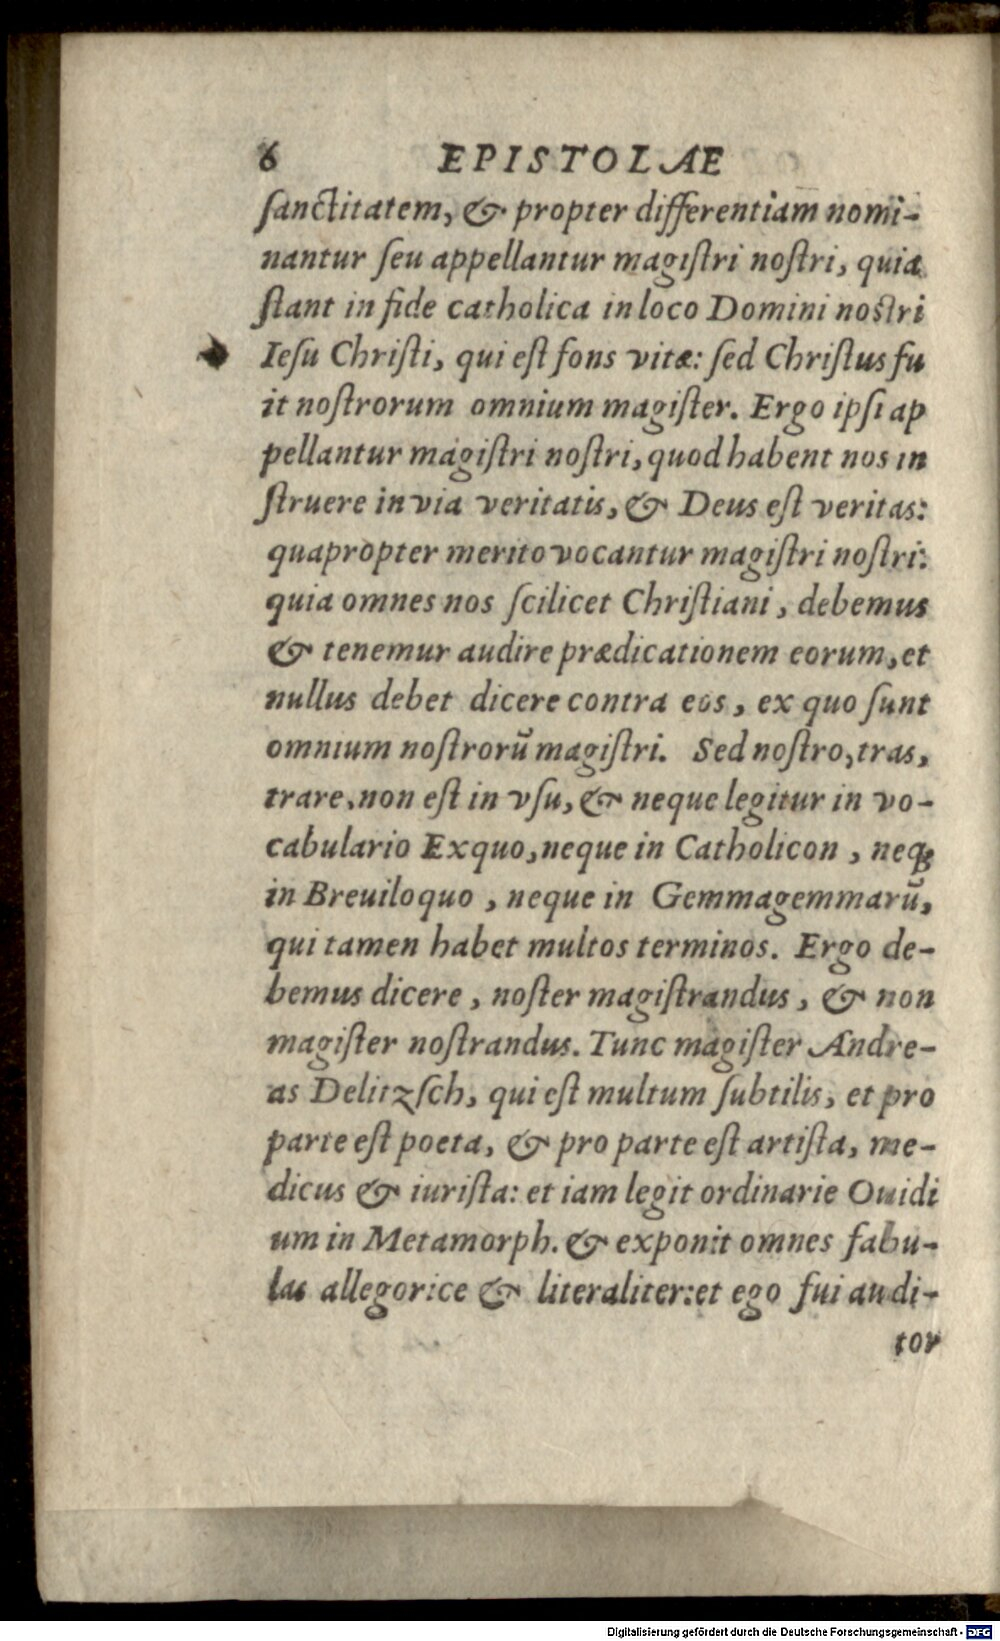 6 EPISTOLAE
ſanctitatem, & propter differentiam nomi-
nantur ſeu appellantur magiſtri noſtri, quia
ſtant in fide catholica in loco Domini noſtri
Ieſu Chriſti, qui eſt fons vitæ: ſed Chriſtus fu
it noſtrorum omnium magiſter. Ergo ipſi ap
pellantur magiſtri noſtri, quod habent nos in
ſtruere in via veritatis, & Deus eſt veritas:
quapropter merito vocantur magiſtri noſtri:
quia omnes nos ſcilicet Chriſtiani, debemus
& tenemur audire prædicationem eorum, et
nullus debet dicere contra eos, ex quo ſunt
omnium noſtrorũ magiſtri. Sed noſtro, tras,
trare, non eſt in vſu, & neque legitur in vo-
cabulario Exquo, neque in Catholicon, neqꝫ
in Breuiloquo, neque in Gemmagemmarũ,
qui tamen habet multos terminos. Ergo de-
bemus dicere, noſter magiſtrandus, & non
magiſter noſtrandus. Tunc magiſter Andre-
as Delitzſch, qui eſt multum ſubtilis, et pro
parte eſt poeta, & pro parte eſt artiſta, me-
dicus & iuriſta: et iam legit ordinarie Ouidi
um in Metamorph. & exponit omnes fabu-
las allegorice & literaliter: et ego fui audi-
tor
Digitalisierung gefördert durch die Deutsche Forschungsgemeinschaft - DFG